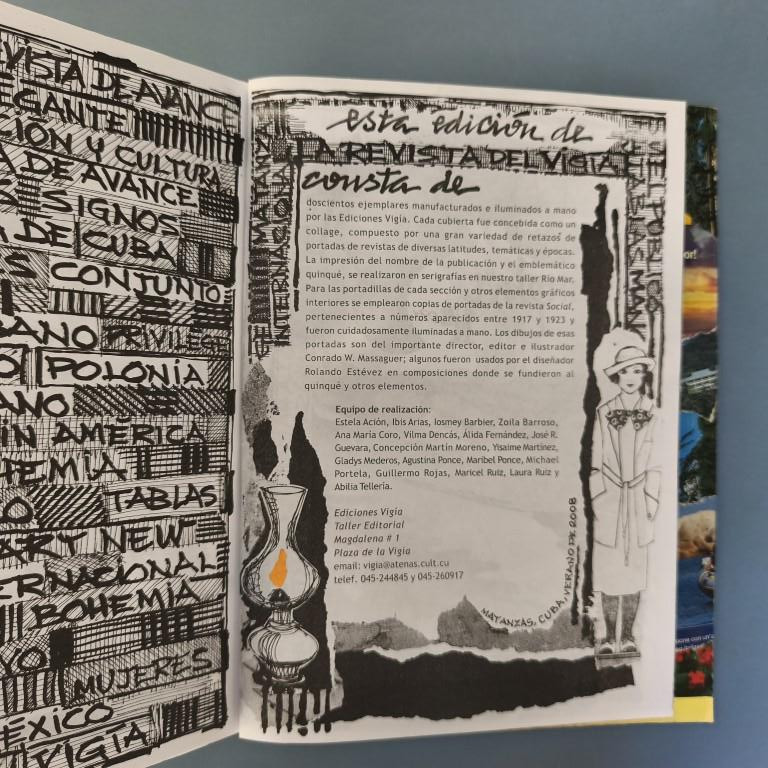 VISTA DE AVANCE
EGANTE
CIÓN Y CULTURA
A DE AVANCE
SIGNOS
A DE CUBA
S CONJUNTO
ANO PRIVILEGE
O POLONIA
ANO
IN AMÉRICA
HEMIA
O TABLAS
ARY NEW
ERNACIONAL
BOHEMIA
MUJERES
ÉXICO
VIGÍA
esta edición de
LA REVISTA DEL VIGÍA
consta de
doscientos ejemplares manufacturados e iluminados a mano
por las Ediciones Vigía. Cada cubierta fue concebida como un
collage, compuesto por una gran variedad de retazos de
portadas de revistas de diversas latitudes, temáticas y épocas.
La impresión del nombre de la publicación y el emblemático
quinqué, se realizaron en serigrafías en nuestro taller Rio Mar.
Para las portadillas de cada sección y otros elementos gráficos
interiores se emplearon copias de portadas de la revista Social,
pertenecientes a números aparecidos entre 1917 y 1923 y
fueron cuidadosamente iluminadas a mano. Los dibujos de esas
portadas son del importante director, editor e ilustrador
Conrado W. Massaguer; algunos fueron usados por el diseñador
Rolando Estévez en composiciones donde se fundieron al
quinqué y otros elementos.
Equipo de realización:
Estela Ación, Ibis Arias, Iosmey Barbier, Zoila Barroso,
Ana María Coro, Vilma Dencás, Álida Fernández, José R.
Guevara, Concepción Martín Moreno, Yisaime Martínez,
Gladys Mederos, Agustina Ponce, Maribel Ponce, Michael
Portela, Guillermo Rojas, Maricel Ruiz, Laura Ruiz y
Abilia Tellería.
Ediciones Vigía
Taller Editorial
Magdalena # 1
Plaza de la Vigía
email: vigia@atenas.cult.cu
telef. 045-244845 y 045-260917
MATANZAS, CUBA, VERANO DE 2008